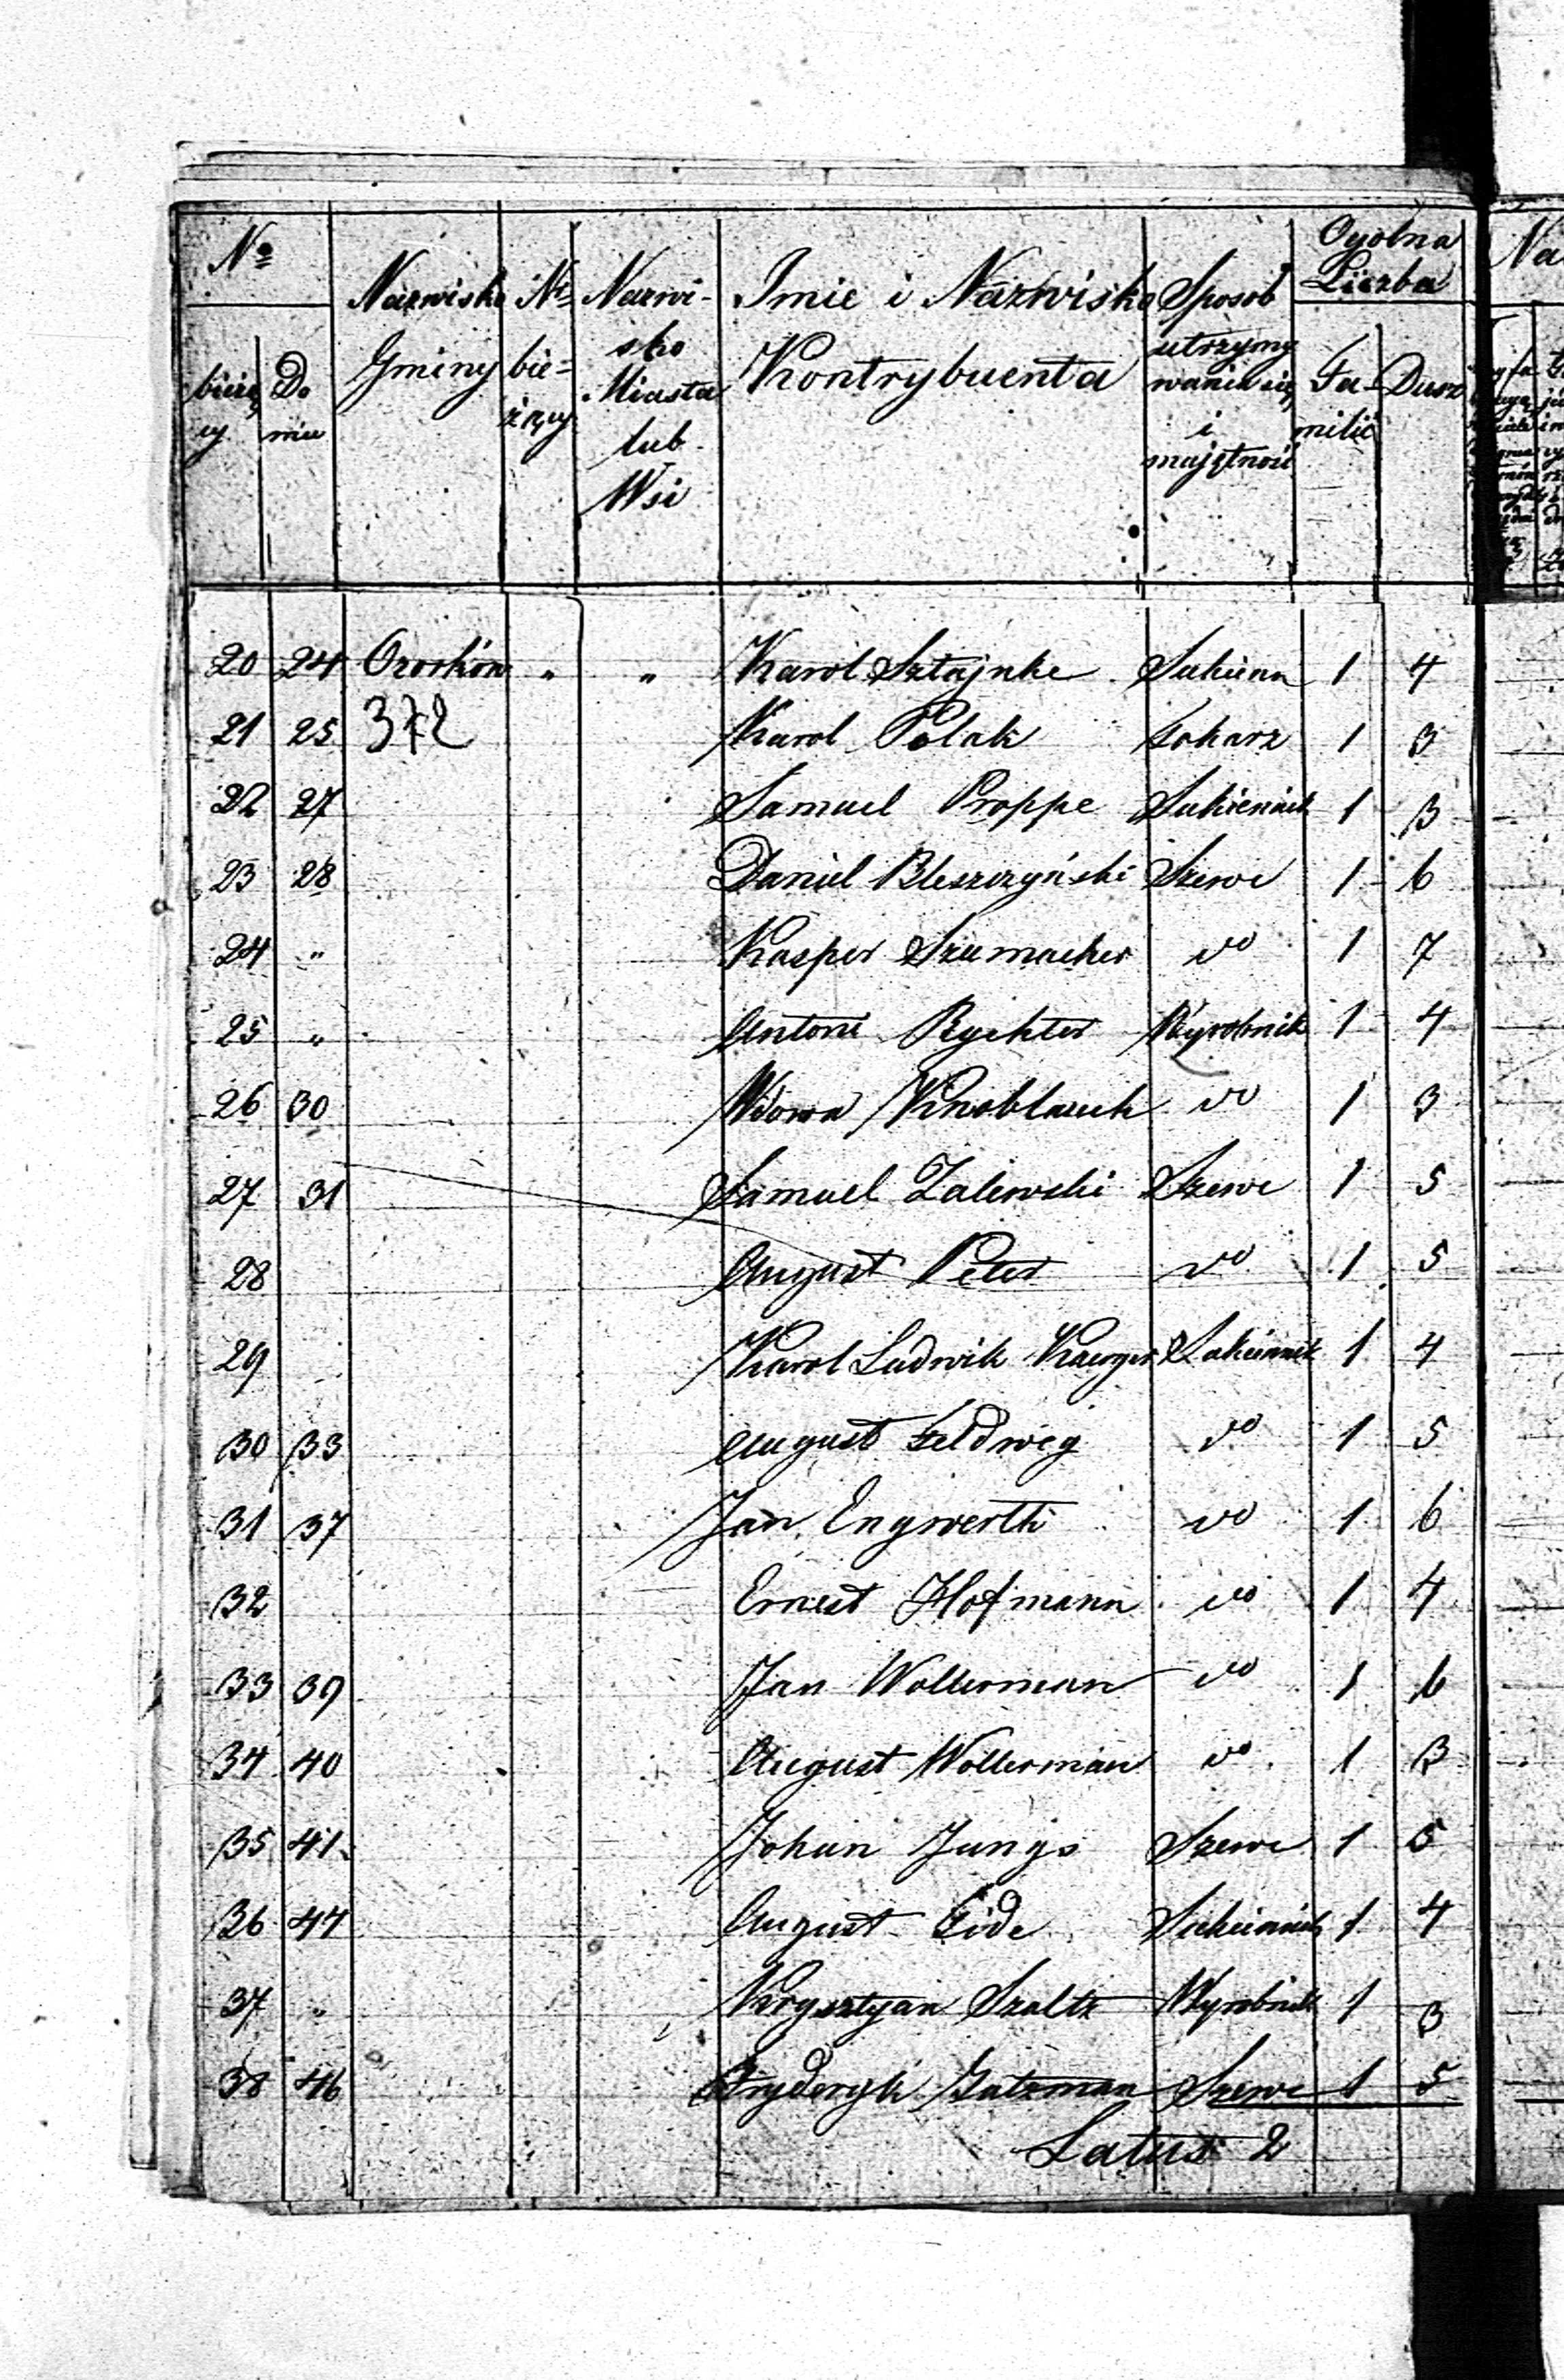 No
bieżą
cy
Do
mu
Nazwisko
Gminy
Nr
bie-
żący
Nazwi-
sko
Miasta
lub
Wsi
Imie i Nazwisko
Kontrybuenta
Sposob
utrzymy
wania się
i
majętność
Ogolna
Liczba
Fa-
milii
Dusz
Na
20 24 Ozorków " " Karol Sztajnke Sukienn 1 4
21 25 372 Karol Polak tokarz 1 3
22 27 Samuel Proppe Sukiennik 1 3
23 28 Daniel Bleszczyński Szewc 1 6
24 " Kasper Szumacher vo 1 7
25 " Antoni Rychter Wyrobnik 1 4
26 30 Wdowa Knoblauch vo 1 3
27 31 Samuel Zalewski Szewc 1 5
28 August Peter vo 1 5
29 Karol Ludwik Sukiennik 1 4
30 33 August Feldweg vo 1 5
31 37 Jan Engwerth vo 1 6
32 Ernest Hofmann vo 1 4
33 39 Jan Wollerman vo 1 6
34 40 August Wollerman vo 1 3
35 41 Johan Jungs Szewc 1 5
36 44 August Sukiennik 1 4
37 " Krysztyan Szaltz Wyrobnik 1 3
38 46 Frydrych Gutzman Szewc 1 5
Latus 2